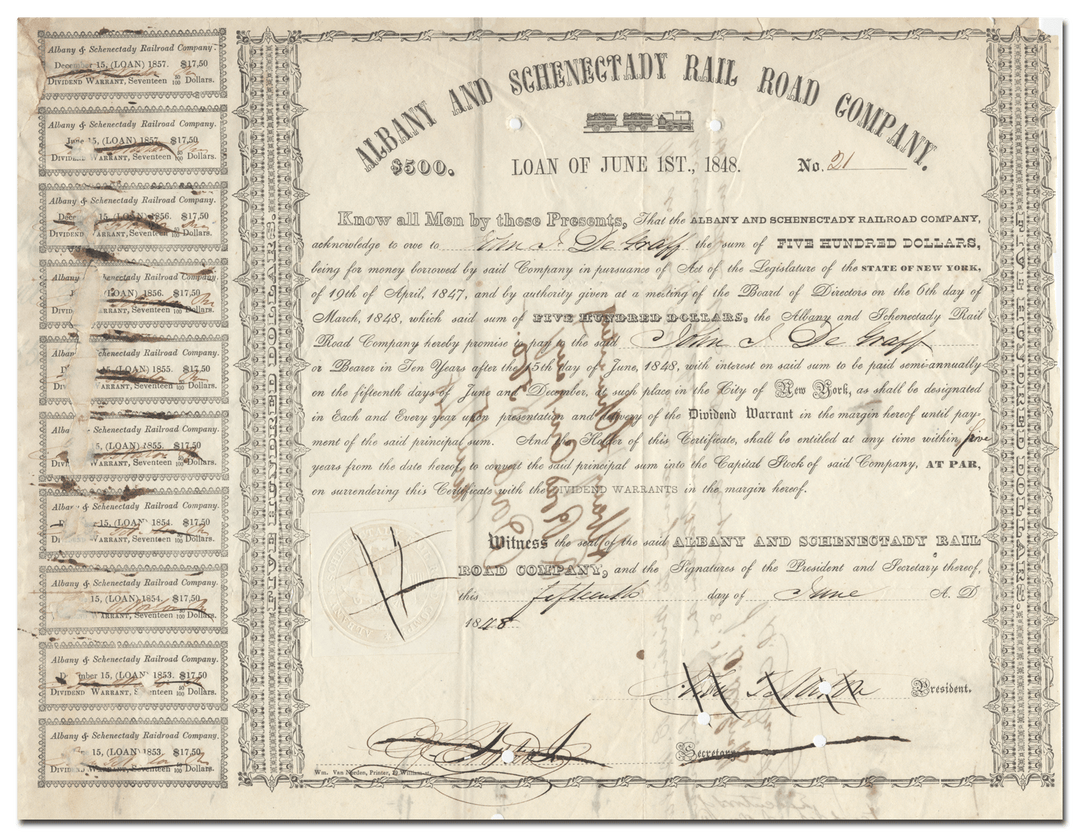 ALBANY AND SCHENECTADY RAIL ROAD COMPANY.
$500. LOAN OF JUNE 1ST., 1848. No. 21
Know all Men by these Presents, That the ALBANY AND SCHENECTADY RAILROAD COMPANY,
acknowledge to owe to John I. De Graff the sum of FIVE HUNDRED DOLLARS,
being for money borrowed by said Company in pursuance of Act of the Legislature of the STATE OF NEW YORK,
of 19th of April, 1847, and by authority given at a meeting of the Board of Directors on the 6th day of
March, 1848, which said sum of FIVE HUNDRED DOLLARS, the Albany and Schenectady Rail
Road Company hereby promise to pay to the said John I. De Graff
or Bearer in Ten Years after the 15th day of June, 1848, with interest on said sum to be paid semi-annually
on the fifteenth days of June and December, at such place in the City of New York, as shall be designated
in Each and Every year upon presentation and delivery of the Dividend Warrant in the margin hereof until pay-
ment of the said principal sum. And the Holder of this Certificate, shall be entitled at any time within five
years from the date hereof, to convert the said principal sum into the Capital Stock of said Company, AT PAR,
on surrendering this Certificate with the DIVIDEND WARRANTS in the margin hereof.
Witness the seal of the said ALBANY AND SCHENECTADY RAIL
ROAD COMPANY, and the Signatures of the President and Secretary thereof,
this fifteenth day of June A. D
1848
President.
Secretary
Wm. Van Norden, Printer,
Albany & Schenectady Railroad Company.
December 15, (LOAN) 1857. $17,50
DIVIDEND WARRANT, Seventeen 50/100 Dollars.
Albany & Schenectady Railroad Company.
June 15, (LOAN) 1857. $17,50
DIVIDEND WARRANT, Seventeen 50/100 Dollars.
Albany & Schenectady Railroad Company.
15, (LOAN) 1856. $17,50
DIVIDEND WARRANT, Seventeen 50/100 Dollars.
Albany & Schenectady Railroad Company.
(LOAN) 1856. $17,50
DIVIDEND WARRANT, Seventeen 50/100 Dollars.
Albany & Schenectady Railroad Company.
15, (LOAN) 1855. $17,50
DIVIDEND WARRANT, Seventeen 50/100 Dollars.
Albany & Schenectady Railroad Company.
(LOAN) 1855. $17,50
DIVIDEND WARRANT, Seventeen 50/100 Dollars.
Albany & Schenectady Railroad Company.
15, (LOAN) 1854. $17,50
DIVIDEND WARRANT, Seventeen 50/100 Dollars.
Albany & Schenectady Railroad Company.
15, (LOAN) 1854. $17,50
DIVIDEND WARRANT, Seventeen 50/100 Dollars.
Albany & Schenectady Railroad Company.
15, (LOAN) 1853. $17,50
DIVIDEND WARRANT, Seventeen 50/100 Dollars.
Albany & Schenectady Railroad Company.
15, (LOAN) 1853. $17,50
DIVIDEND WARRANT, Seventeen 50/100 Dollars.